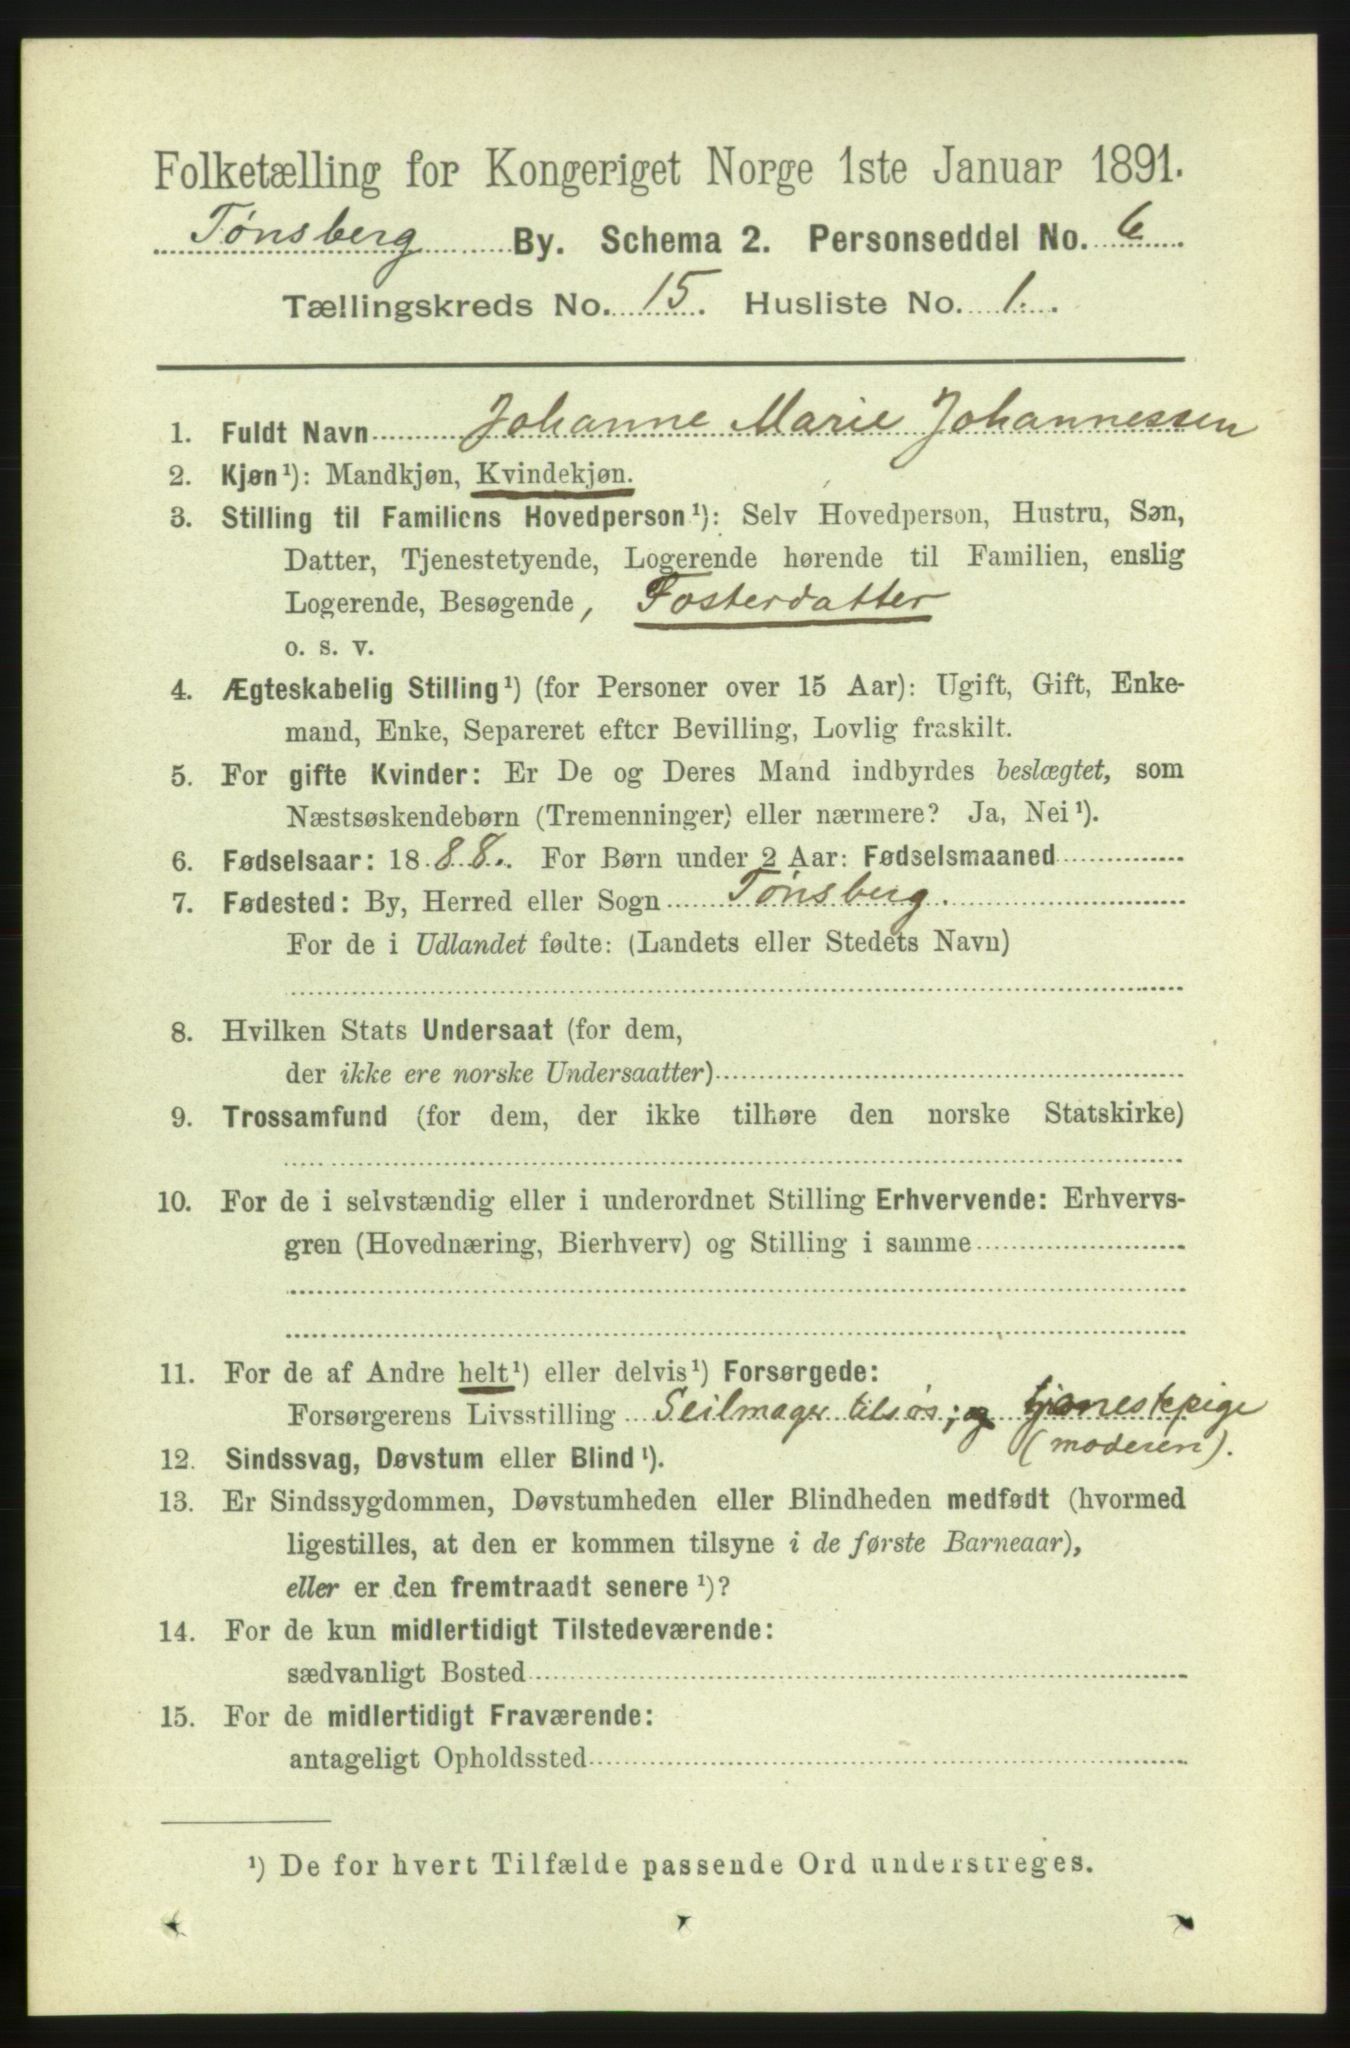 Folketælling for Kongeriget Norge 1ste Januar 1891.
Tønsberg By. Schema 2. Personseddel No. 6
Tællingskreds No. 15. Husliste No. 1.
1. Fuldt Navn Johanne Marie Johannessen
2. Kjøn¹): Mandkjøn, Kvindekjøn.
3. Stilling til Familiens Hovedperson¹): Selv Hovedperson, Hustru, Søn,
Datter, Tjenestetyende, Logerende hørende til Familien, enslig
Logerende, Besøgende, Fosterdatter
o. s. v.
4. Ægteskabelig Stilling¹) (for Personer over 15 Aar): Ugift, Gift, Enke-
mand, Enke, Separeret efter Bevilling, Lovlig fraskilt.
5. For gifte Kvinder: Er De og Deres Mand indbyrdes beslægtet, som
Næstsøskendebørn (Tremenninger) eller nærmere? Ja, Nei¹).
6. Fødselsaar: 1888. For Børn under 2 Aar: Fødselsmaaned
7. Fødested: By, Herred eller Sogn Tønsberg.
For de i Udlandet fødte: (Landets eller Stedets Navn)
8. Hvilken Stats Undersaat (for dem,
der ikke ere norske Undersaatter)
9. Trossamfund (for dem, der ikke tilhøre den norske Statskirke)
10. For de i selvstændig eller i underordnet Stilling Erhvervende: Erhvervs-
gren (Hovednæring, Bierhverv) og Stilling i samme
11. For de af Andre helt¹) eller delvis¹) Forsørgede:
Forsørgerens Livsstilling Seilmager tilsøs; og tjenestepige
(moderen).
12. Sindssvag, Døvstum eller Blind¹).
13. Er Sindssygdommen, Døvstumheden eller Blindheden medfødt (hvormed
ligestilles, at den er kommen tilsyne i de første Barneaar),
eller er den fremtraadt senere¹)?
14. For de kun midlertidigt Tilstedeværende:
sædvanligt Bosted
15. For de midlertidigt Fraværende:
antageligt Opholdssted
¹) De for hvert Tilfælde passende Ord understreges.